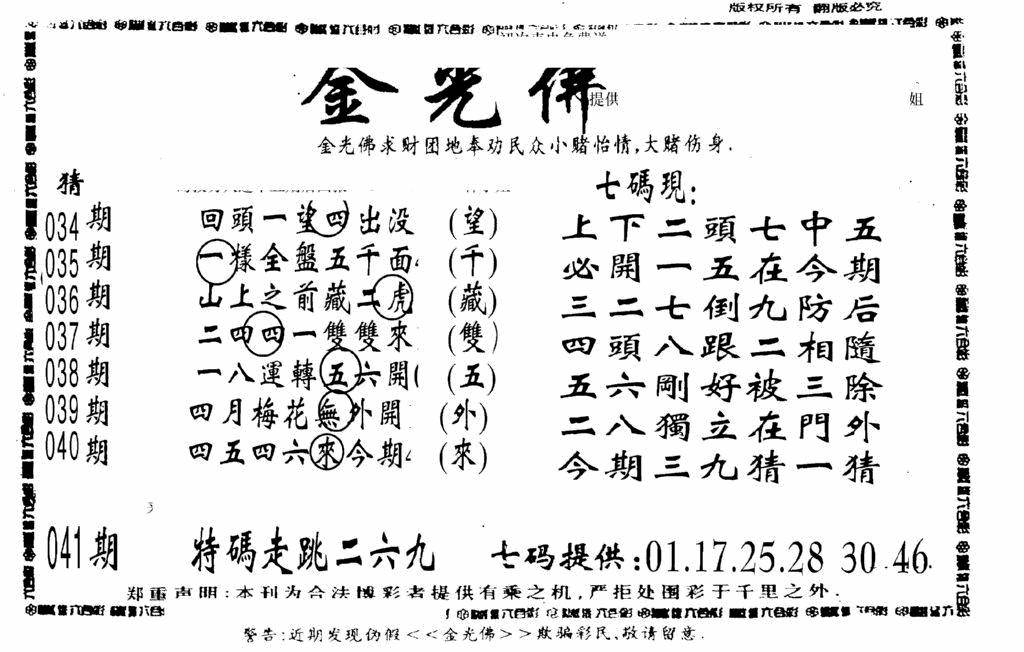 版权所有 翻版必究
金光佛
提供
姐
金光佛求财团地奉劝民众小赌怡情,大赌伤身.
猜
七碼現:
034期 回頭一望四出没 (望)
上下二頭七中五
035期 一樣全盤五千面 (千)
必開一五在今期
036期 山上之前藏二虎 (藏)
三二七倒九防后
037期 二四四一雙雙來 (雙)
四頭八跟二相隨
038期 一八運轉五六開 (五)
五六剛好被三除
039期 四月梅花無外開 (外)
二八獨立在門外
040期 四五四六來今期 (來)
今期三九猜一猜
041期 特碼走跳二六九 七码提供:01.17.25.28 30 46.
郑重声明:本刊为合法博彩者提供有乘之机,严拒处围彩于千里之外.
警告:近期发现伪假<<金光佛>>欺骗彩民,敬请留意.